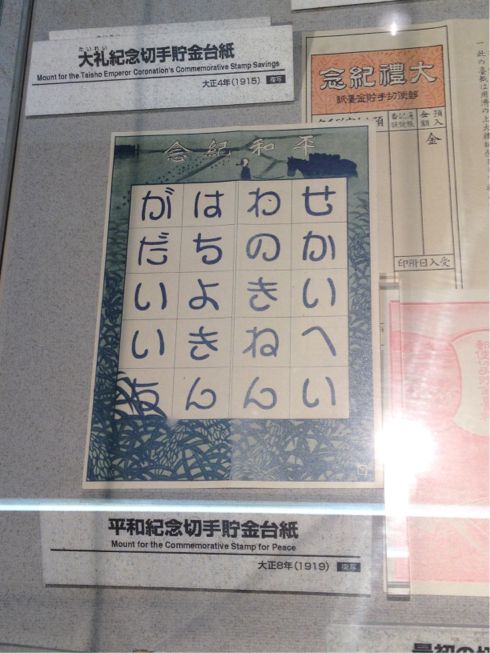 たいれい
大礼紀念切手貯金台紙
Mount for the Taisho Emperor Coronation's Commemorative Stamp Savings
大正4年(1915) 複写
大禮紀念
郵便切手貯金臺紙
預入金額
金
受入日附印
平和紀念
せかいへい
わのきねん
はちよきん
がだいいち
平和紀念切手貯金台紙
Mount for the Commemorative Stamp for Peace
大正8年(1919) 複写
最初の